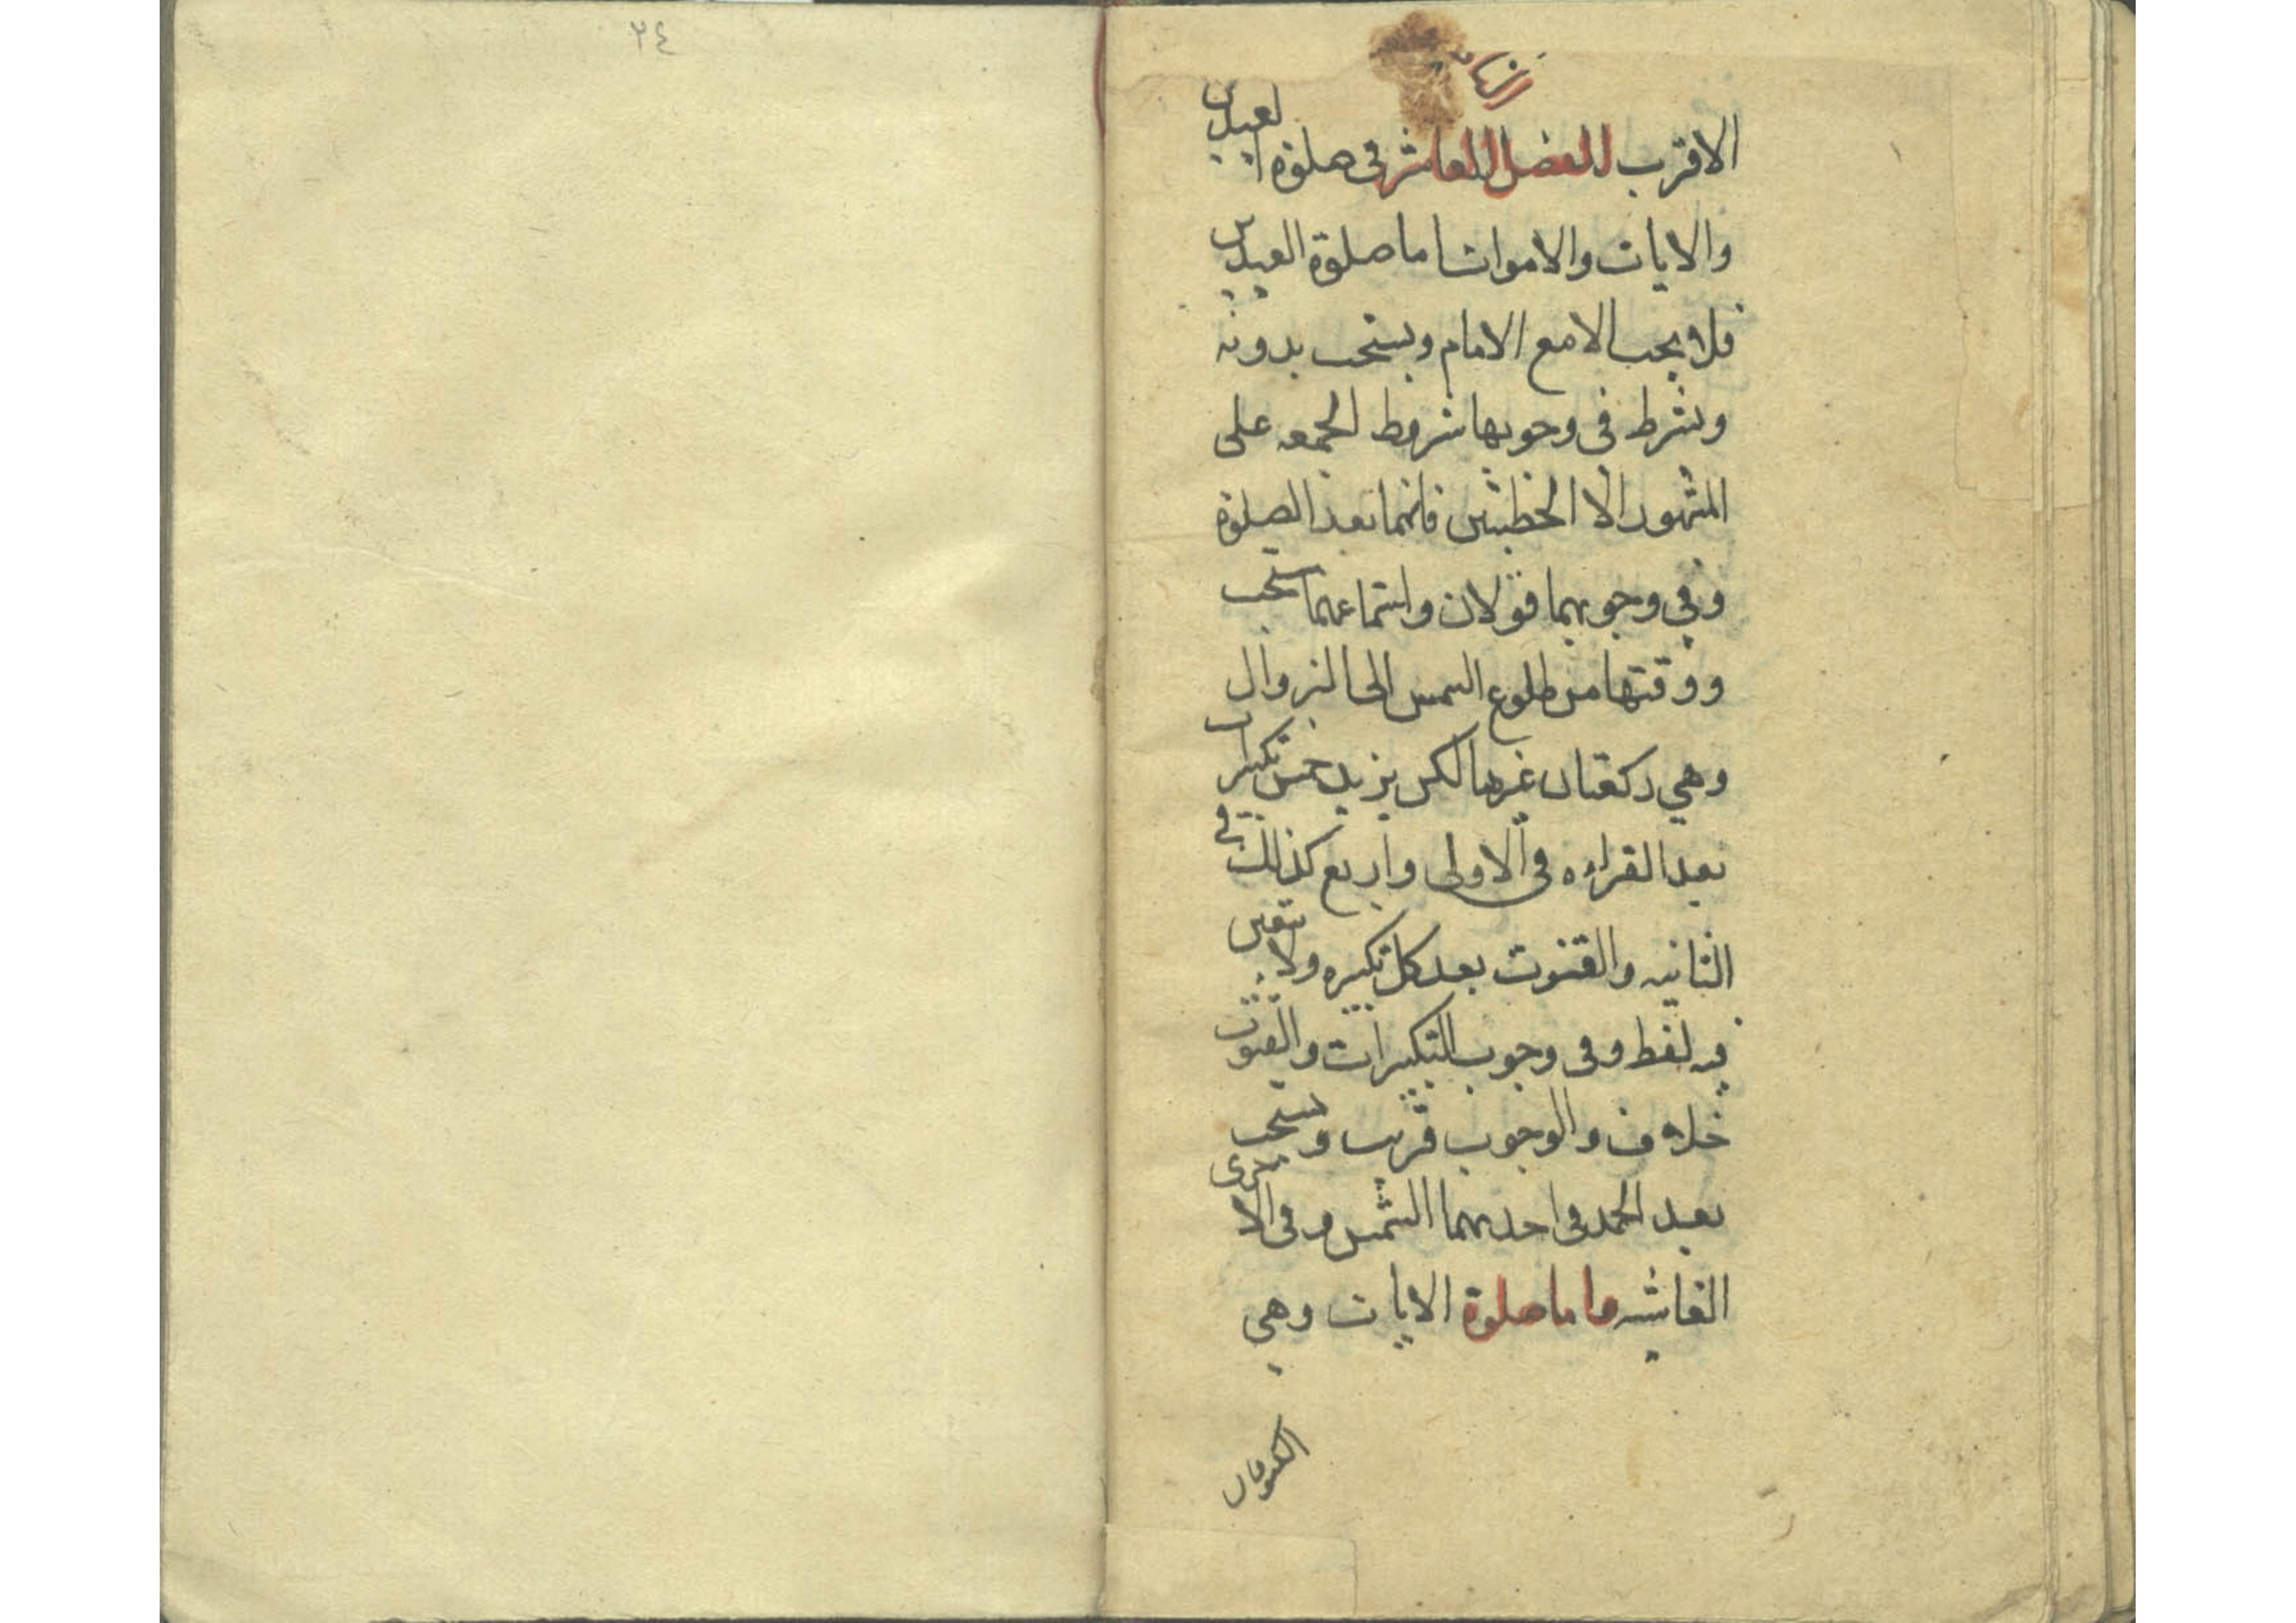 ٢٤
الاقرب الفصل العاشر فى صلوة العيدين
والايات والاموات اما صلوة العيدين
فلا يجب الا مع الامام ويستحب بدونه
ويشرط فى وجوبها شروط الجمعه على
المشهور الا الخطبتين فانهما بعد الصلوة
وفي وجوبهما قولان واستماعهما مستحب
ووقتها من طلوع الشمس الى الزوال
وهي ركعتان غيرها لكن يزيد خمس تكبيرات
بعد القراءه فى الاولى واربع كذلك في
الثانيه والقنوت بعد كل تكبيره ولا يتعين
فيه لفظ وفى وجوب التكبيرات والقنوت
خلاف والوجوب قريب ويستحب
بعد الحمد فى احديهما الشمس وفى الاخرى
الغاشيه واما صلوة الايات وهي
الكسوفان